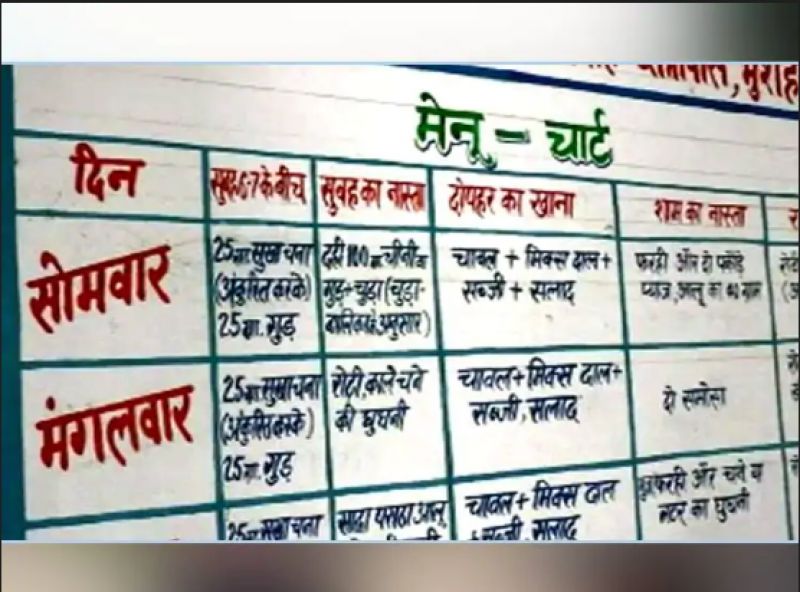 मेनू - चार्ट
दिन
सुबह 6-7 के बीच
सुबह का नास्ता
दोपहर का खाना
शाम का नास्ता
सोमवार
25 ग्रा. सुखा चना
(अंकुरित करके)
25 ग्रा. गुड़
दही 100 ग्रा. चीनी
गुड़ + चुड़ा (चुड़ा-
अनुसार)
चावल + मिक्स दाल +
सब्जी + सलाद
फरही और दो पकौड़े
प्याज, आलू का
मंगलवार
25 ग्रा. सुखा चना
(अंकुरित करके)
25 ग्रा. गुड़
रोटी, काले चने
की घुघनी
चावल + मिक्स दाल +
सब्जी, सलाद
दो समोसा
25 ग्रा. सुखा चना
सादा पराठा आलू
चावल + मिक्स दाल
सब्जी, सलाद
फरही और चने या
मटर का घुघनी